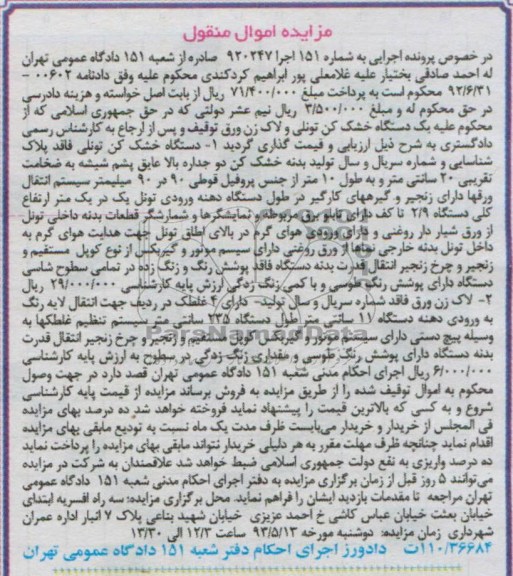 مزایده اموال منقول
در خصوص پرونده اجرایی به شماره ۱۵۱ اجرا ۹۲۰۲۴۷ صادره از شعبه ۱۵۱ دادگاه عمومی تهران
له احمد صادقی بختیار علیه غلامعلی پور ابراهیم کردکندی محکوم علیه وفق دادنامه ۰۰۶۰۲ -
۹۲/۶/۳۱ محکوم است به پرداخت مبلغ ۷۱/۴۰۰/۰۰۰ ریال از بابت اصل خواسته و هزینه دادرسی
در حق محکوم له و مبلغ ۳/۵۰۰/۰۰۰ ریال نیم عشر دولتی که در حق جمهوری اسلامی که از
محکوم علیه یک دستگاه خشک کن تونلی و لاک زن ورق توقیف و پس از ارجاع به کارشناس رسمی
دادگستری به شرح ذیل ارزیابی و قیمت گذاری گردید ۱- دستگاه خشک کن تونلی فاقد پلاک
شناسایی و شماره سریال و سال تولید بدنه خشک کن دو جداره بالا عایق پشم شیشه به ضخامت
تقریبی ۲۰ سانتی متر و به طول ۱۰ متر از جنس پروفیل قوطی ۹۰ در ۹۰ میلیمتر سیستم انتقال
ورقها دارای زنجیر و گیرههای کارگیر در طول دستگاه دهنه ورودی تونل یک در یک متر ارتفاع
کلی دستگاه ۲/۹ تا کف دارای تابلو برق مربوطه و نمایشگرها و شمارشگر قطعات بدنه داخلی تونل
از ورق شیار دار روغنی و دارای ورودی هوای گرم در بالای اطاق تونل جهت هدایت هوای گرم به
داخل تونل بدنه خارجی نماها از ورق روغنی دارای سیسم موتور و گیربکس از نوع کوپل مستقیم و
زنجیر و چرخ زنجیر انتقال قدرت بدنه دستگاه فاقد پوشش رنگ و زنگ زده در تمامی سطوح شاسی
دستگاه دارای پوشش رنگ طوسی و با کمی زنگ زدگی ارزش پایه کارشناسی ۲۹/۰۰۰/۰۰۰ ریال
۲- لاک زن ورق فاقد شماره سریال و سال تولید- دارای ۴ غلطک در ردیف جهت انتقال لایه رنگ
به ورودی دهنه دستگاه ۱۱ سانتی متر طول دستگاه ۲۳۵ سانتی متر سیستم تنظیم غلطکها به
وسیله پیچ دستی دارای سیستم موتور و گیربکس کوپل مستقیم و زنجیر و چرخ زنجیر انتقال قدرت
بدنه دستگاه دارای پوشش رنگ طوسی و مقداری زنگ زدگی در سطوح به ارزش پایه کارشناسی
۶/۰۰۰/۰۰۰ ریال اجرای احکام مدنی شعبه ۱۵۱ دادگاه عمومی تهران قصد دارد در جهت وصول
محکوم به اموال توقیف شده را از طریق مزایده به فروش برساند مزایده از قیمت پایه کارشناسی
شروع و به کسی که بالاترین قیمت را پیشنهاد نماید فروخته خواهد شد ده درصد بهای مزایده
فی المجلس از خریدار و خریدار می‌بایست ظرف مدت یک ماه نسبت به تودیع مابقی بهای مزایده
اقدام نماید چنانچه ظرف مهلت مقرر به هر دلیلی خریدار نتواند مابقی بهای مزایده را پرداخت نماید
ده درصد واریزی به نفع دولت جمهوری اسلامی ضبط خواهد شد علاقمندان به شرکت در مزایده
می‌توانند ۵ روز قبل از زمان برگزاری مزایده به دفتر اجرای احکام مدنی شعبه ۱۵۱ دادگاه عمومی
تهران مراجعه تا مقدمات بازدید ایشان را فراهم نماید. محل برگزاری مزایده: سه راه افسریه ابتدای
خیابان بعثت خیابان عباس کاشی خ احمد عزیزی خیابان شهید بناعی پلاک ۷ انبار اداره عمران
شهرداری زمان مزایده: دوشنبه مورخه ۹۳/۵/۱۳ ساعت ۱۲/۳ الی ۱۳/۳۰
۱۱۰/۳۶۶۸۴ت دادورز اجرای احکام دفتر شعبه ۱۵۱ دادگاه عمومی تهران
ParsNamadData